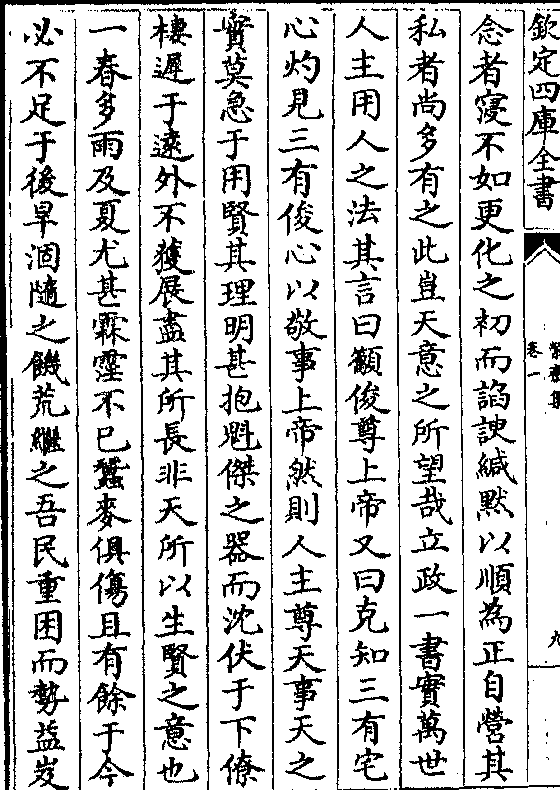 欽定四庫全書
卷一
九
念者寖不如更化之初而諂諛緘默以順為正自營其
私者尚多有之此豈天意之所望哉立政一書實萬世
人主用人之法其言曰籲俊尊上帝又曰克知三有宅
心灼見三有俊心以敬事上帝然則人主尊天事天之
實莫急于用賢其理明甚抱魁傑之器而沈伏于下僚
棲遲于遠外不獲展盡其所長非天所以生賢之意也
一春多雨及夏尤甚霖霪不已蠶麥俱傷且有餘于今
必不足于後旱涸隨之饑荒繼之吾民重困而勢益岌